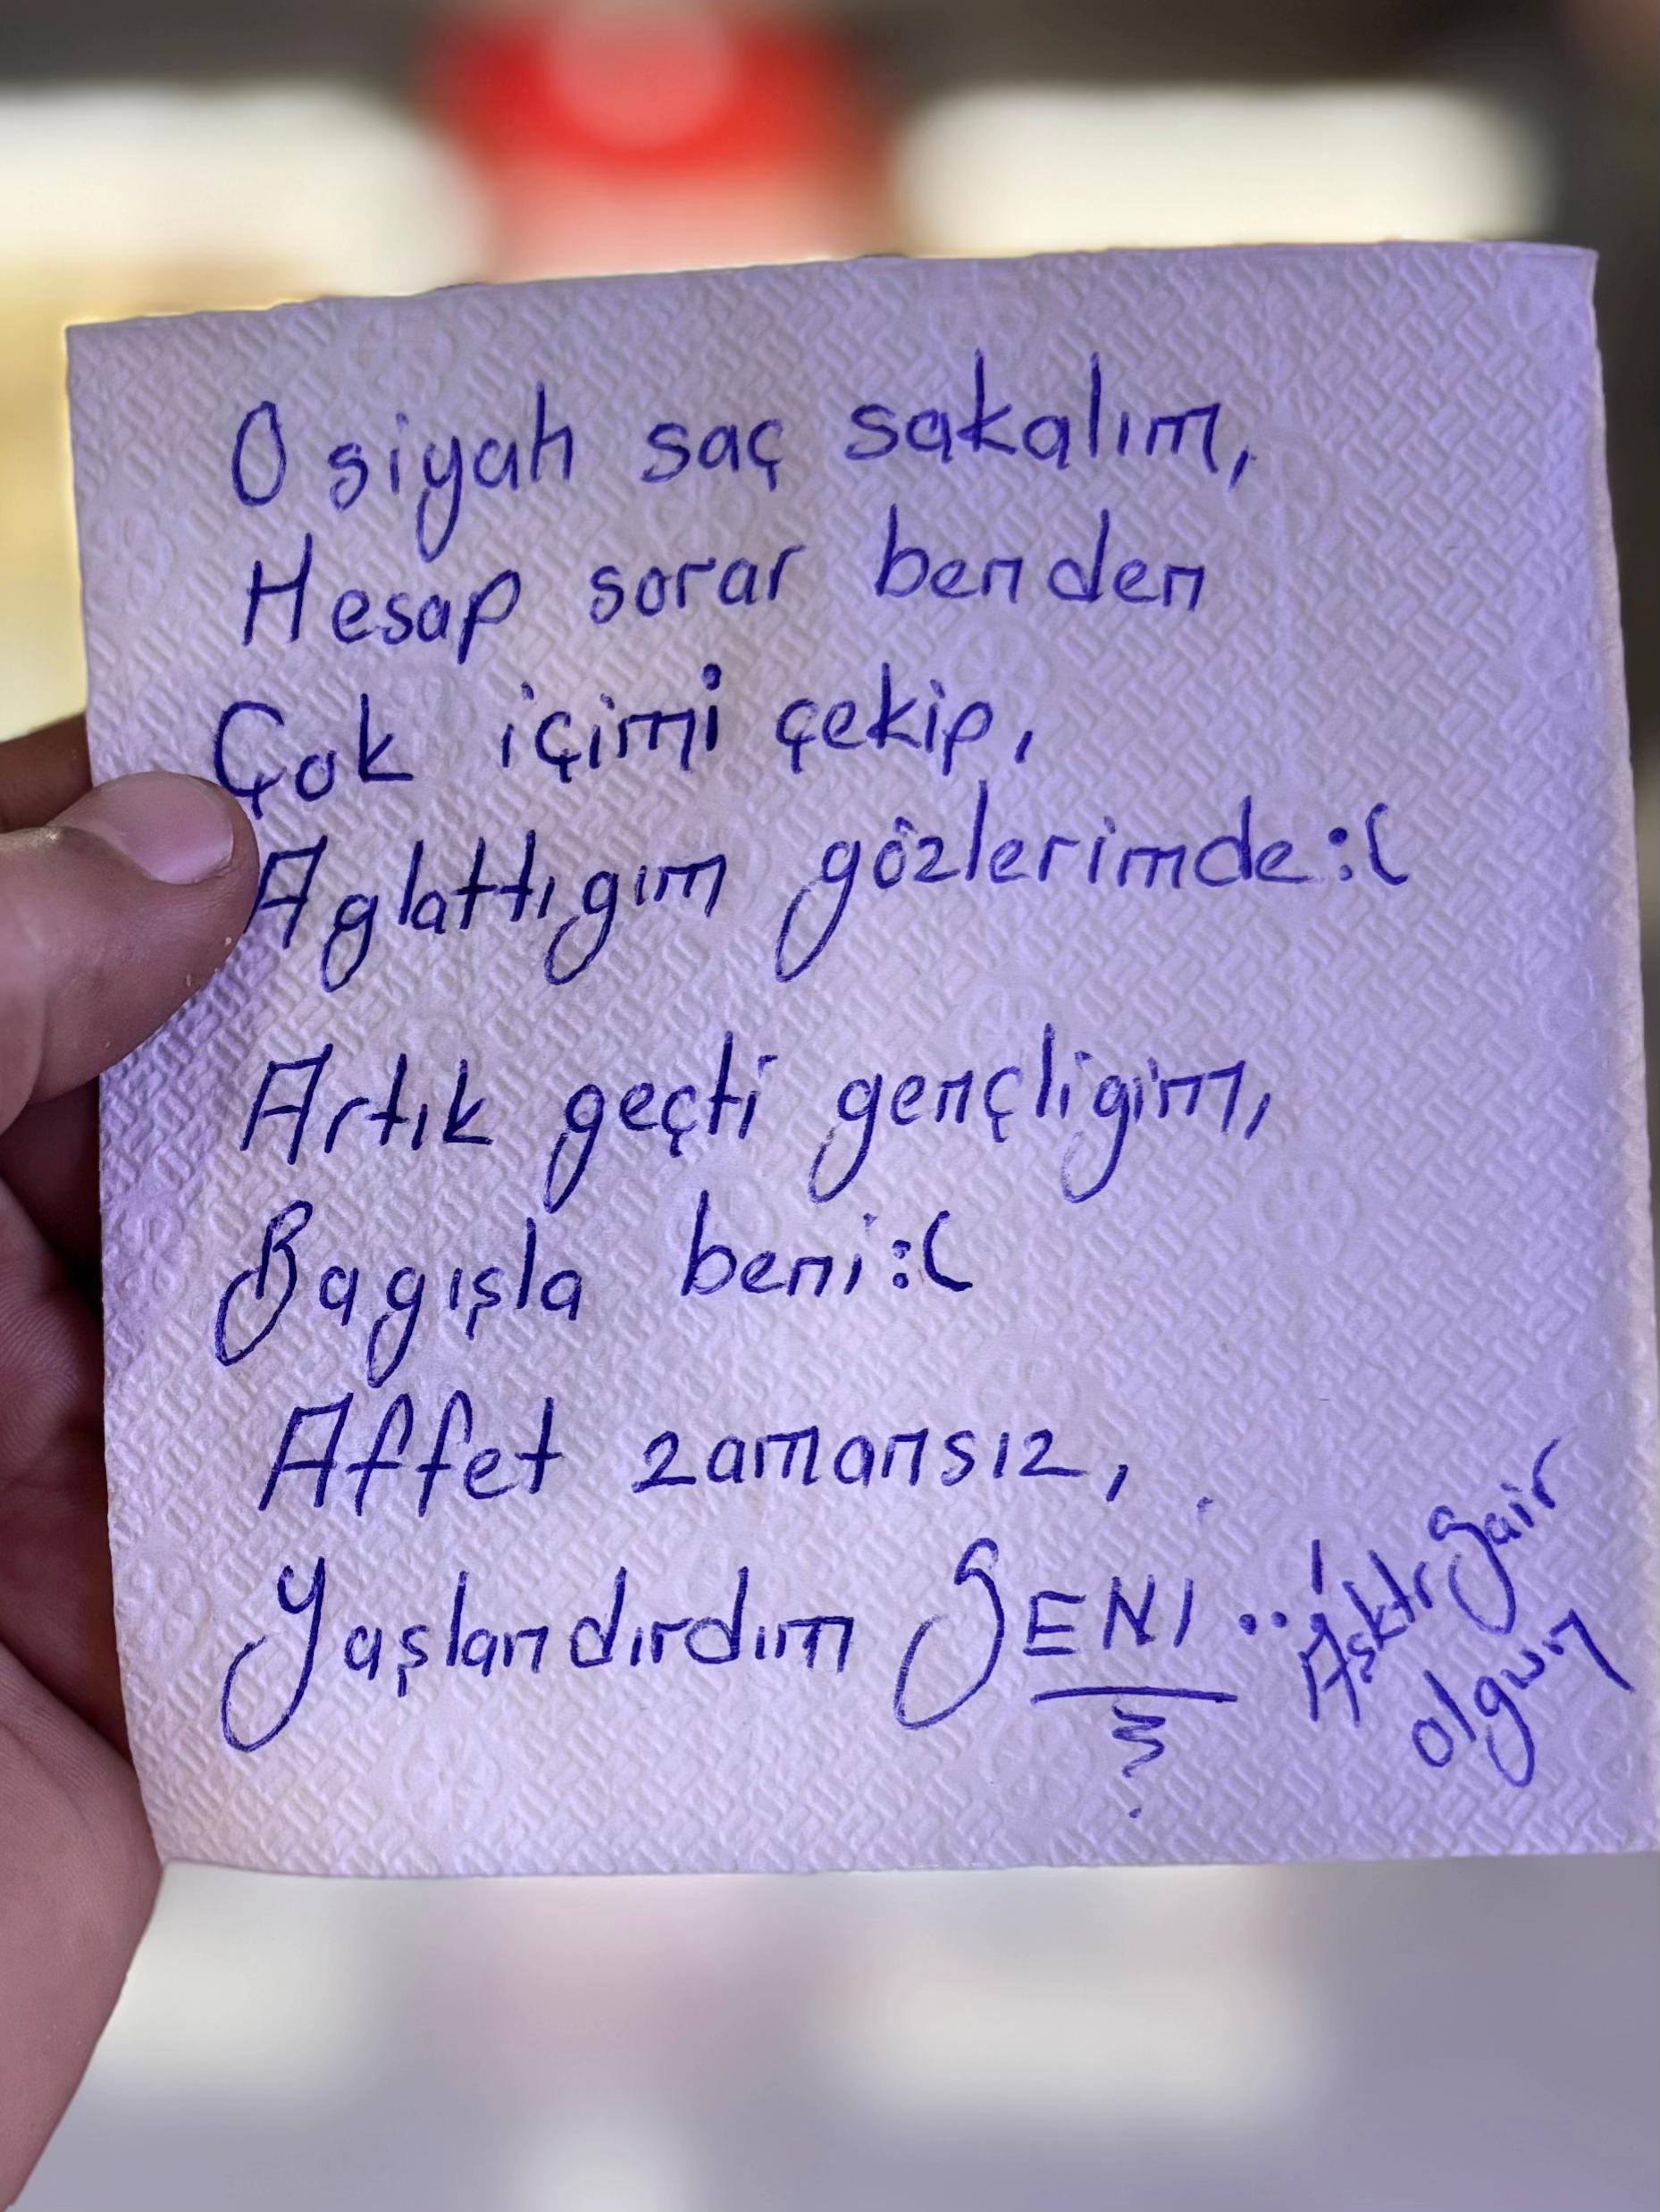 O siyah saç sakalım,
Hesap sorar benden
Çok içimi çekip,
Aglattıgım gözlerimde:(
Artık geçti gençligim,
Bagışla beni:(
Affet zamansız,
Yaşlandırdım SENİ...!
Şair
olgun